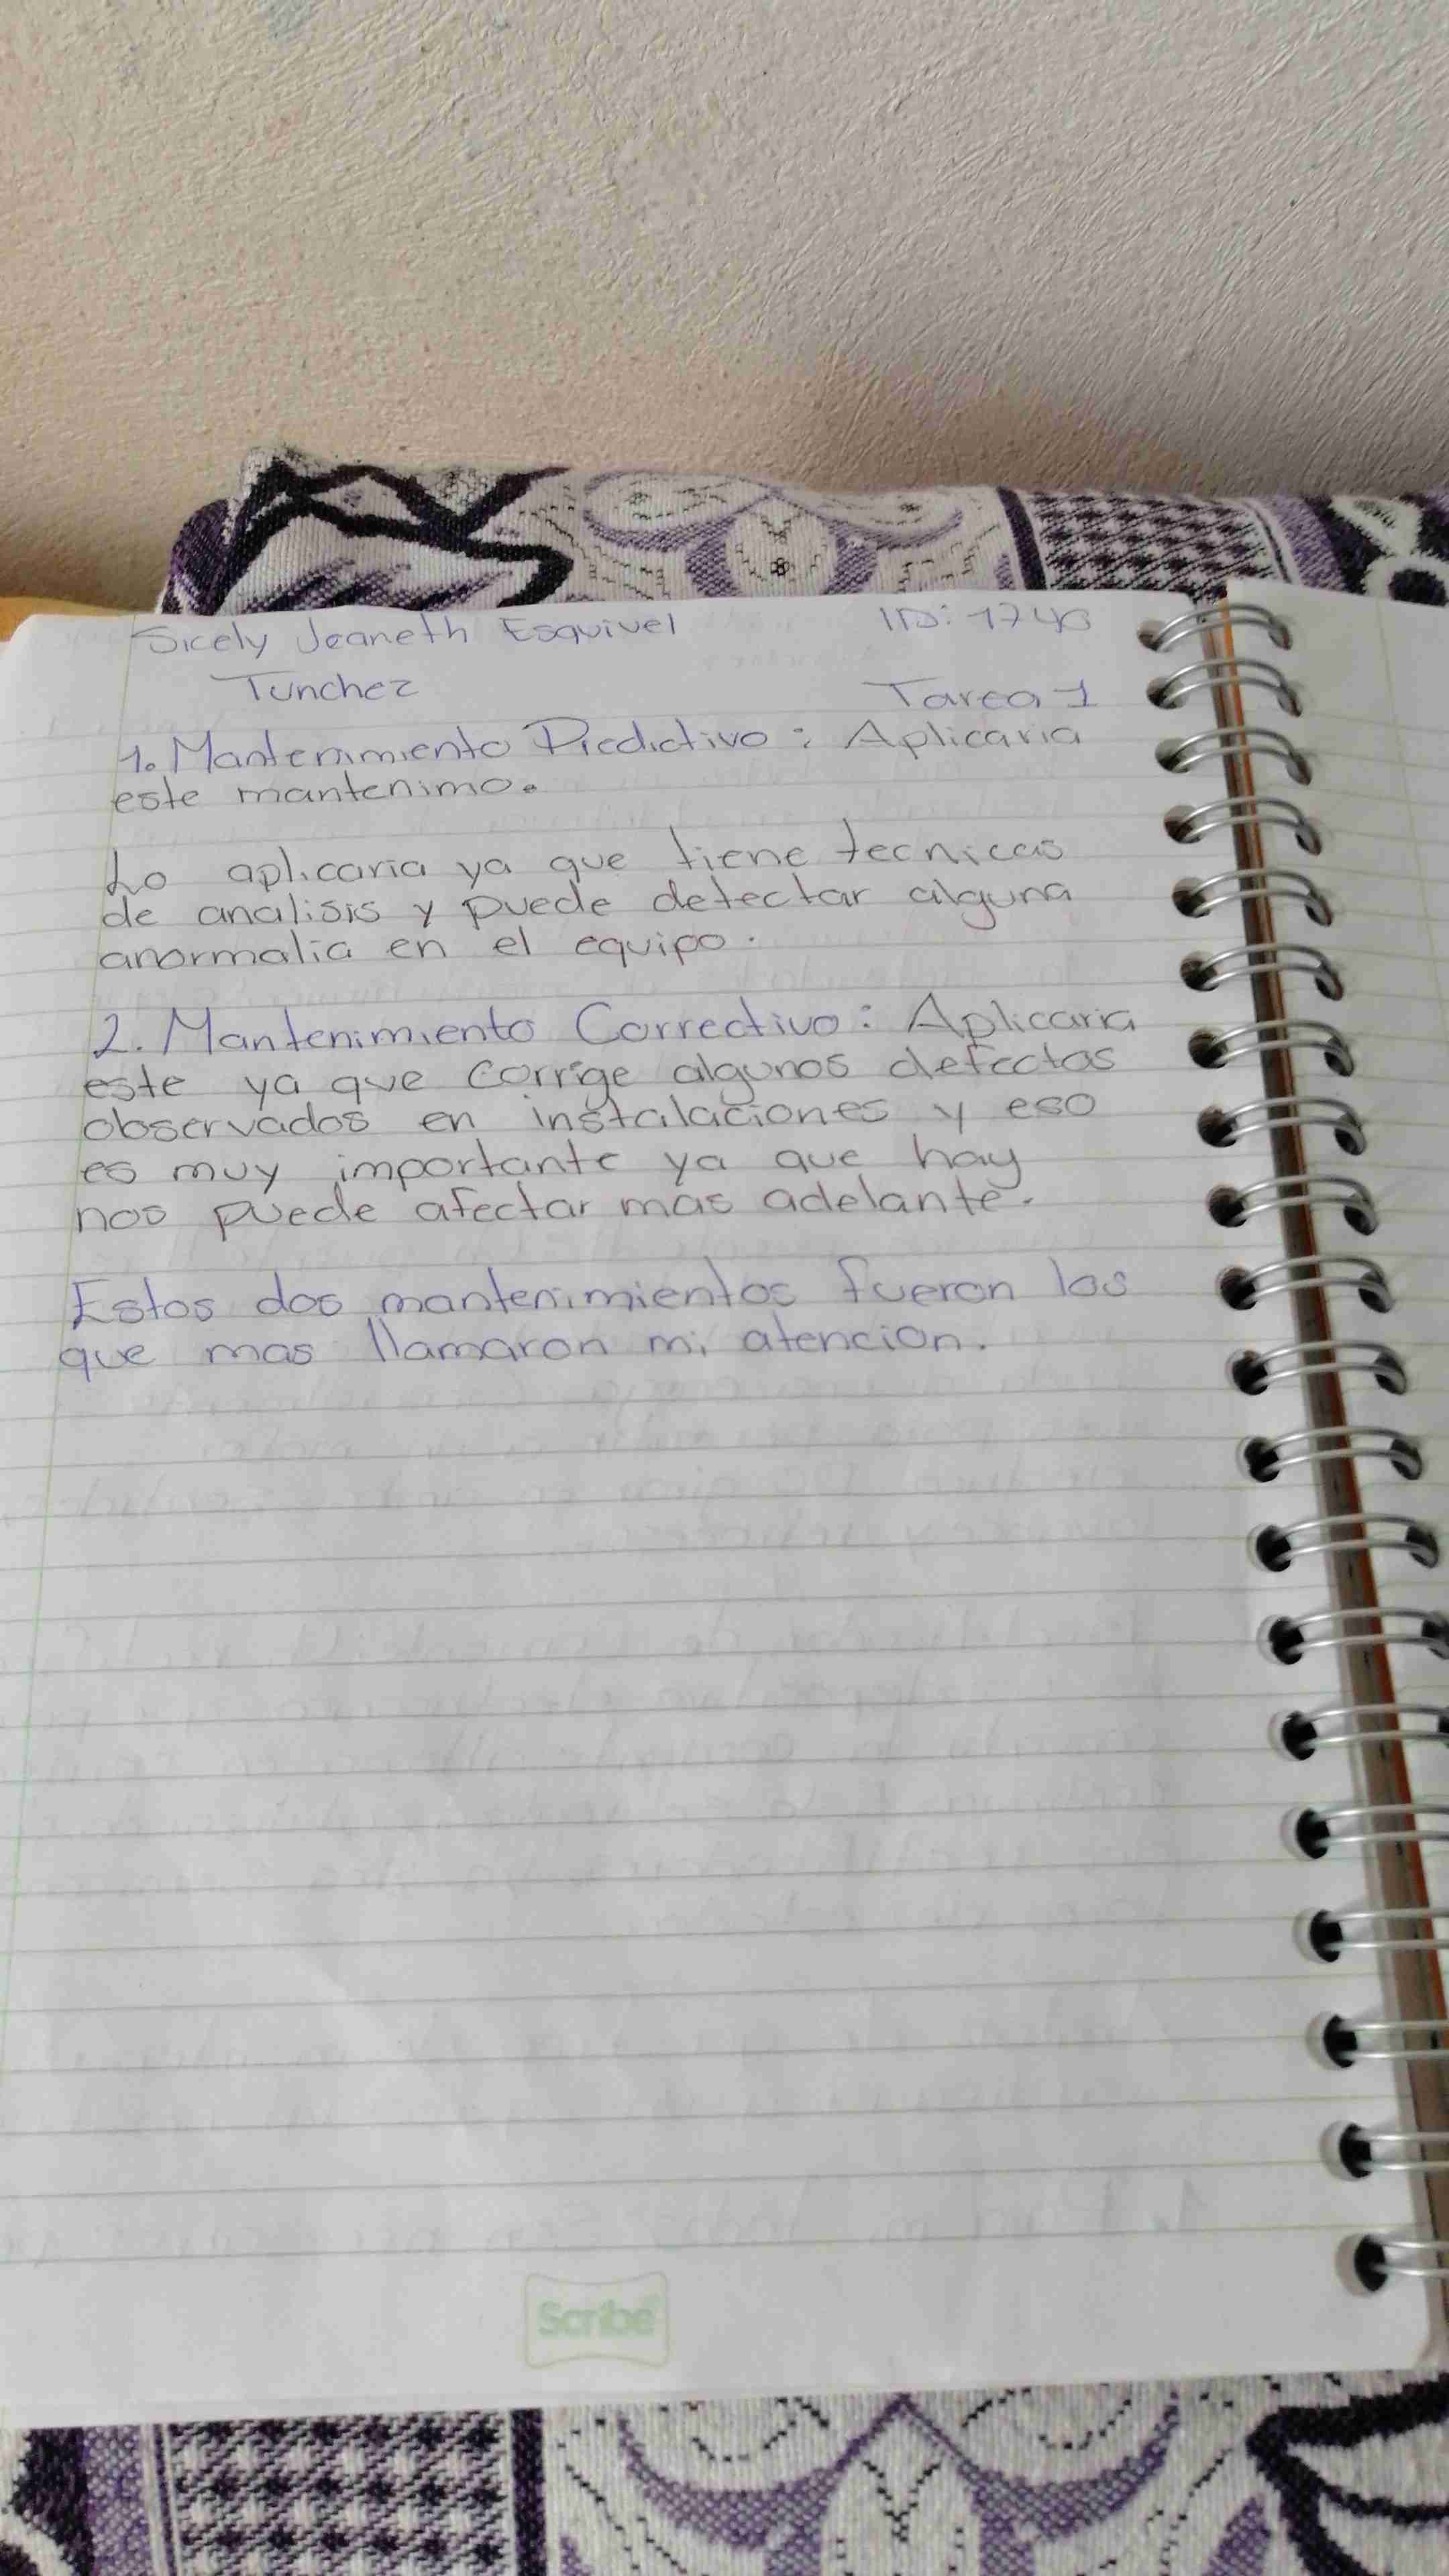 Sicely Jeaneth Esquivel
ID: 1743
Tunchez
Tarea 1
1. Mantenimiento Predictivo: Aplicaria
este mantenimo.
Lo aplicaria ya que tiene tecnicas
de analisis y puede detectar alguna
anormalia en el equipo.
2. Mantenimiento Correctivo: Aplicaria
este ya que corrige algunos defectos
observados en instalaciones y eso
es muy importante ya que hay
nos puede afectar mas adelante.
Estos dos mantenimientos fueron los
que mas llamaron mi atencion.
Scribe